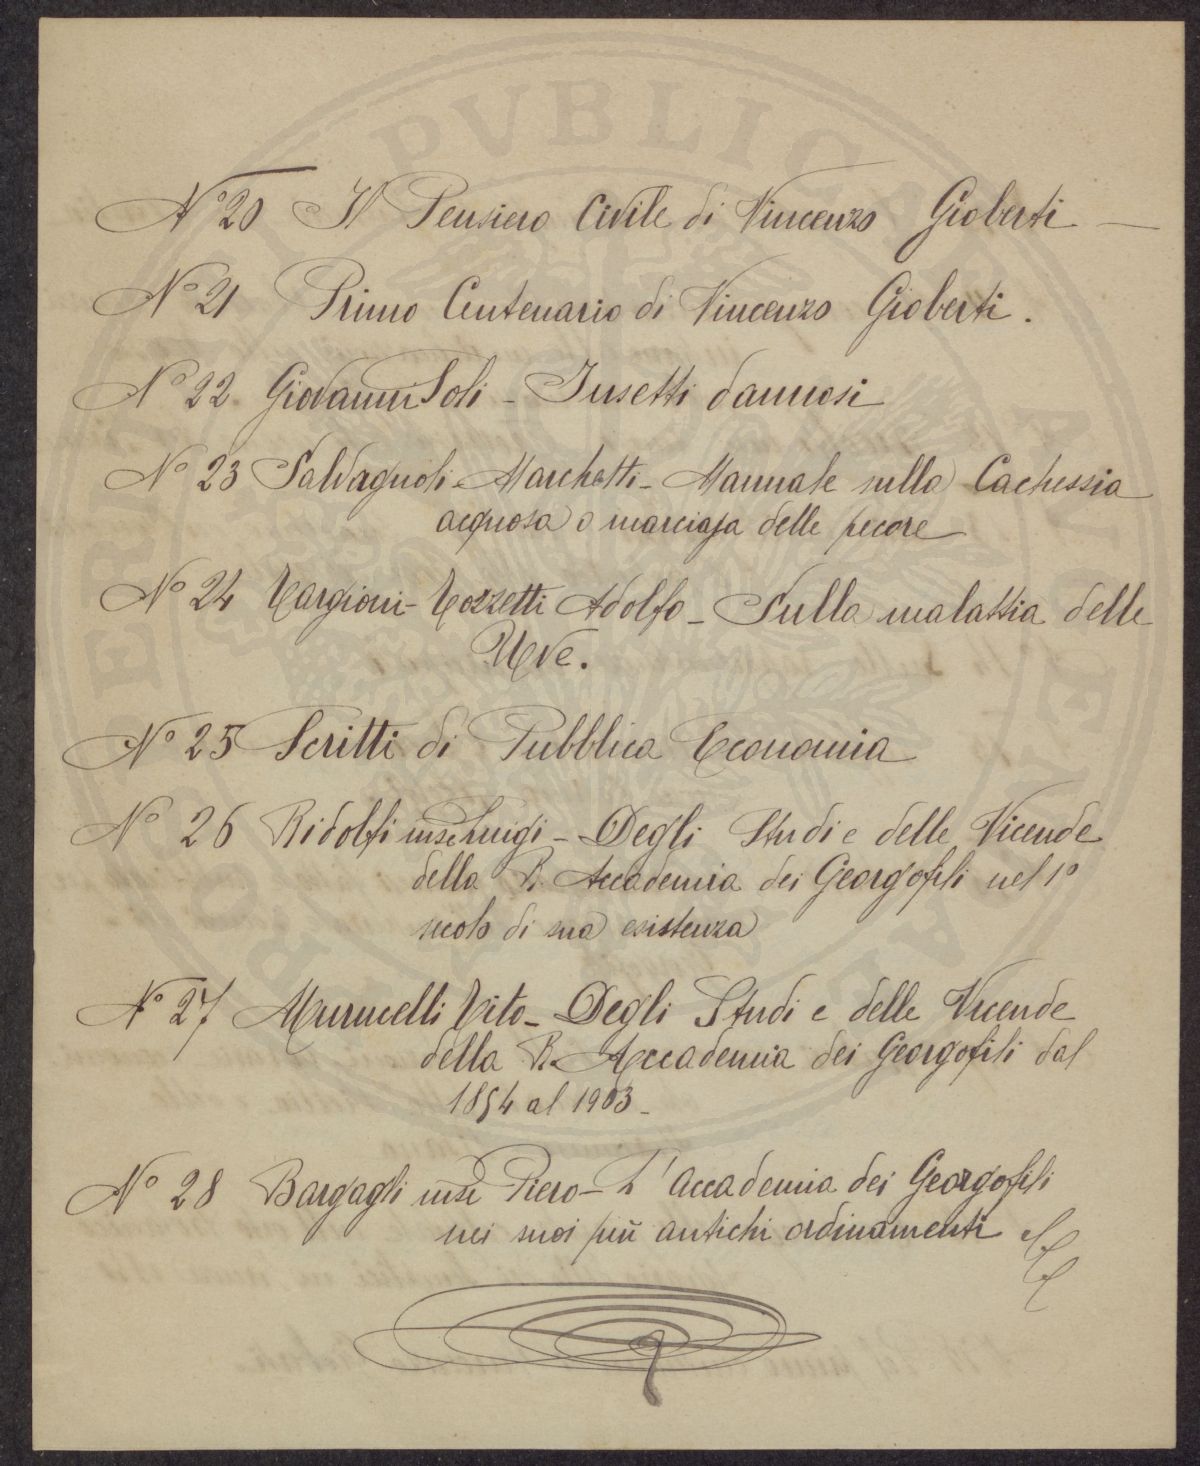 N° 20 Il Pensiero Civile di Vincenzo Gioberti —
N° 21 Primo Centenario di Vincenzo Gioberti.
N° 22 Giovanni Soli - Insetti dannosi
N° 23 Salvagnoli-Marchetti - Manuale sulla Cachessia
acquosa o marciaja delle pecore
N° 24 Targioni-Tozzetti Adolfo - Sulla malattia delle
Uve.
N° 25 Scritti di Pubblica Economia
N° 26 Ridolfi mse Luigi - Degli Studi e delle Vicende
della R. Accademia dei Georgofili nel 1°
secolo di sua esistenza
N° 27 Vito - Degli Studi e delle Vicende
della R. Accademia dei Georgofili dal
1854 al 1903 -
N° 28 Bargagli mse Piero - L'Accademia dei Georgofili
nei suoi più antichi ordinamenti